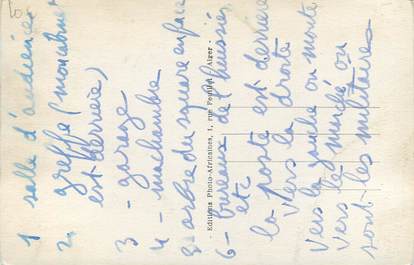 1 salle d'audience
2. greffe (mon cabinet
est derrière)
3 - garage
4 - ma chambre
5 arbre du square en face
6 - bureaux de l'huissier
etc
la poste est derrière
Vers la droite
Vers la gauche on monte
Vers le marché où
sont les militaires
- Editions Photo-Africaines, 1, rue Feuillet, Alger -